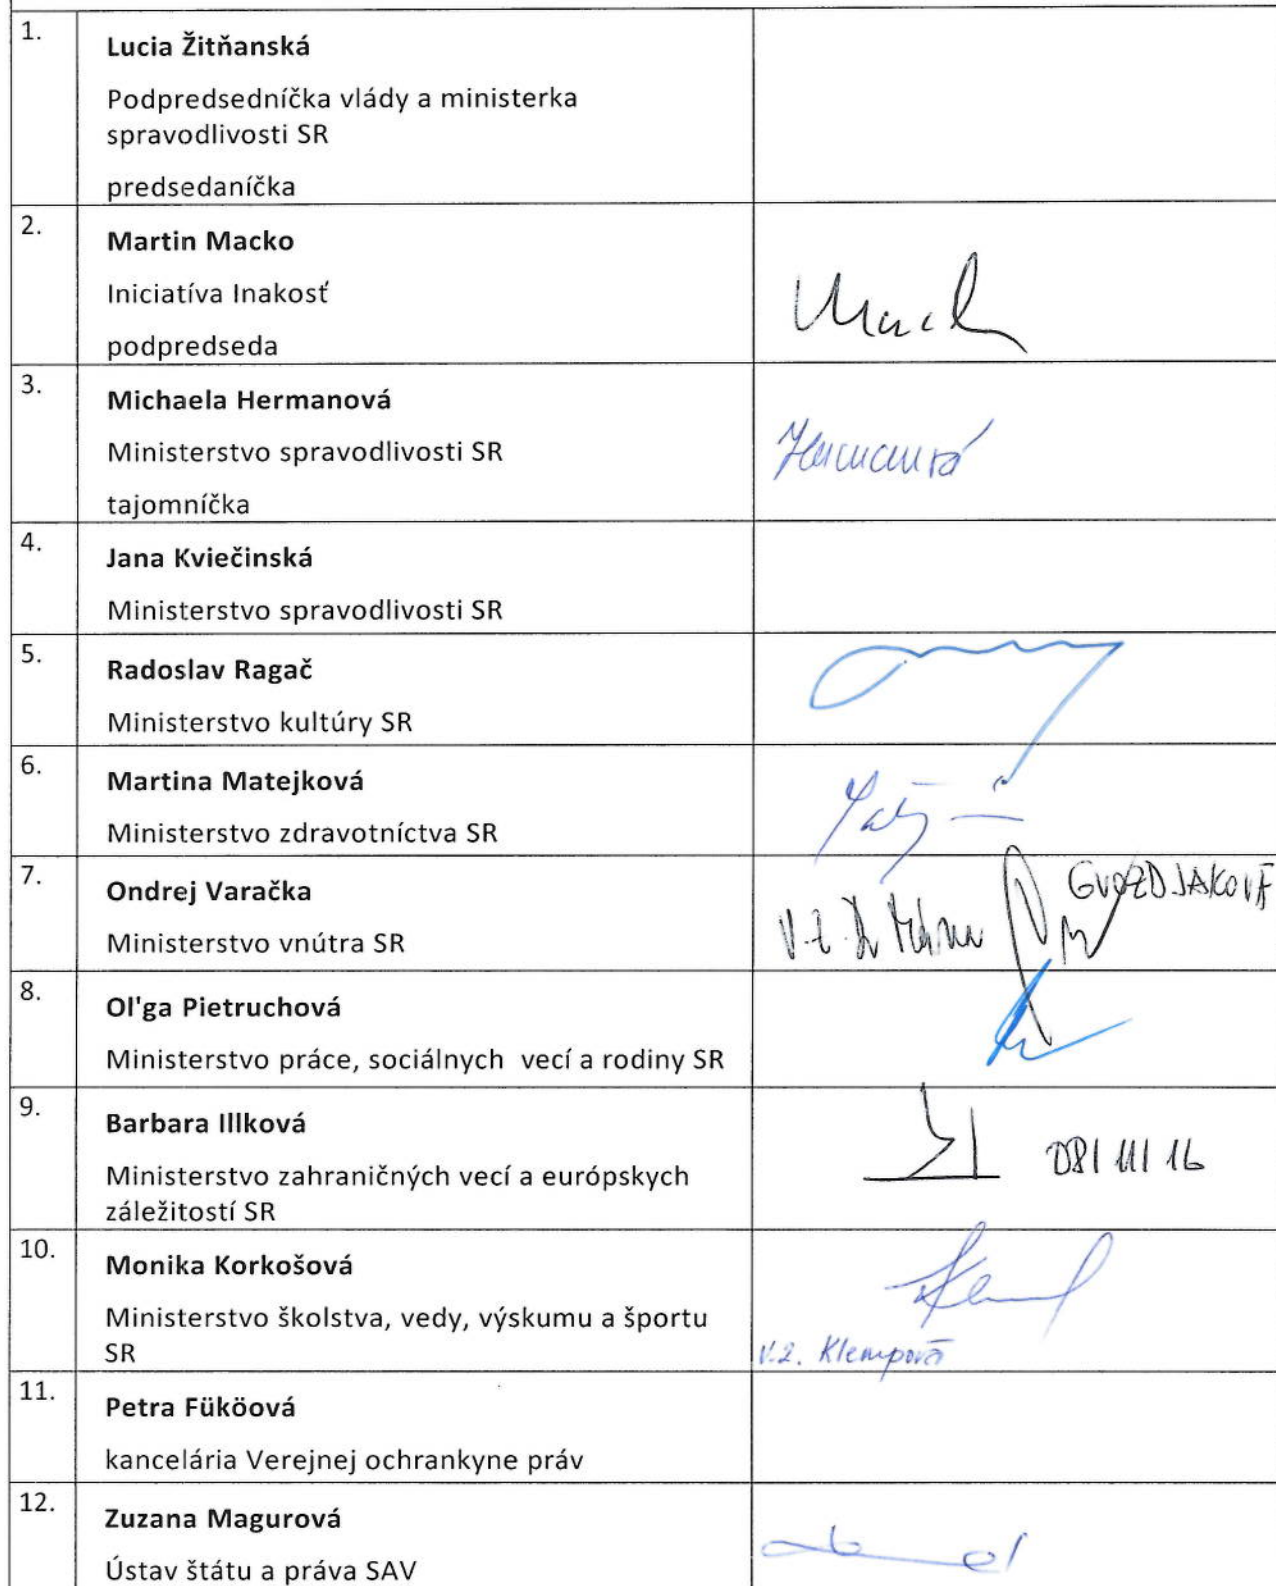 1.
Lucia Žitňanská
Podpredsedníčka vlády a ministerka
spravodlivosti SR
predsedaníčka
2.
Martin Macko
Iniciatíva Inakosť
podpredseda
3.
Michaela Hermanová
Ministerstvo spravodlivosti SR
tajomníčka
Hermanová
4.
Jana Kviečinská
Ministerstvo spravodlivosti SR
5.
Radoslav Ragač
Ministerstvo kultúry SR
6.
Martina Matejková
Ministerstvo zdravotníctva SR
7.
Ondrej Varačka
Ministerstvo vnútra SR
GVOZDJAKOVÁ
v.z.
8.
Ol'ga Pietruchová
Ministerstvo práce, sociálnych vecí a rodiny SR
9.
Barbara Illková
Ministerstvo zahraničných vecí a európskych
záležitostí SR
10.
Monika Korkošová
Ministerstvo školstva, vedy, výskumu a športu
SR
v.z. Klempová
11.
Petra Füköová
kancelária Verejnej ochrankyne práv
12.
Zuzana Magurová
Ústav štátu a práva SAV